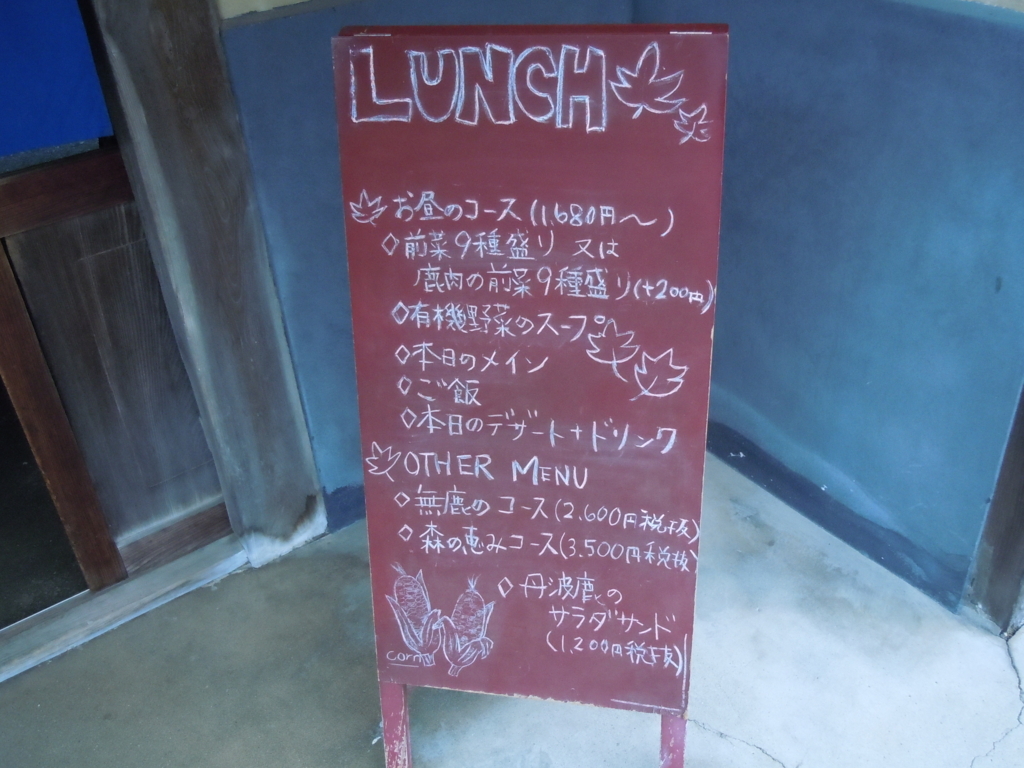 LUNCH
お昼のコース(1,680円〜)
◇前菜9種盛り 又は
鹿肉の前菜9種盛り(+200円)
◇有機野菜のスープ
◇本日のメイン
◇ご飯
◇本日のデザート+ドリンク
OTHER MENU
◇無鹿のコース(2,600円税抜)
◇森の恵みコース(3,500円税抜)
◇丹波鹿の
サラダサンド
(1,200円税抜)